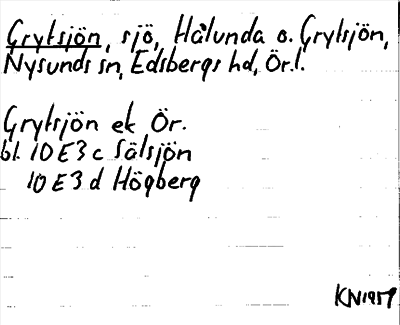 Grytsjön, sjö, Hålunda o. Grytsjön,
Nysunds sn, Edsbergs hd, Ör.l.
Grytsjön ek Ör.
bl. 10E3c Sälsjön
10E3d Högberg
KN1957